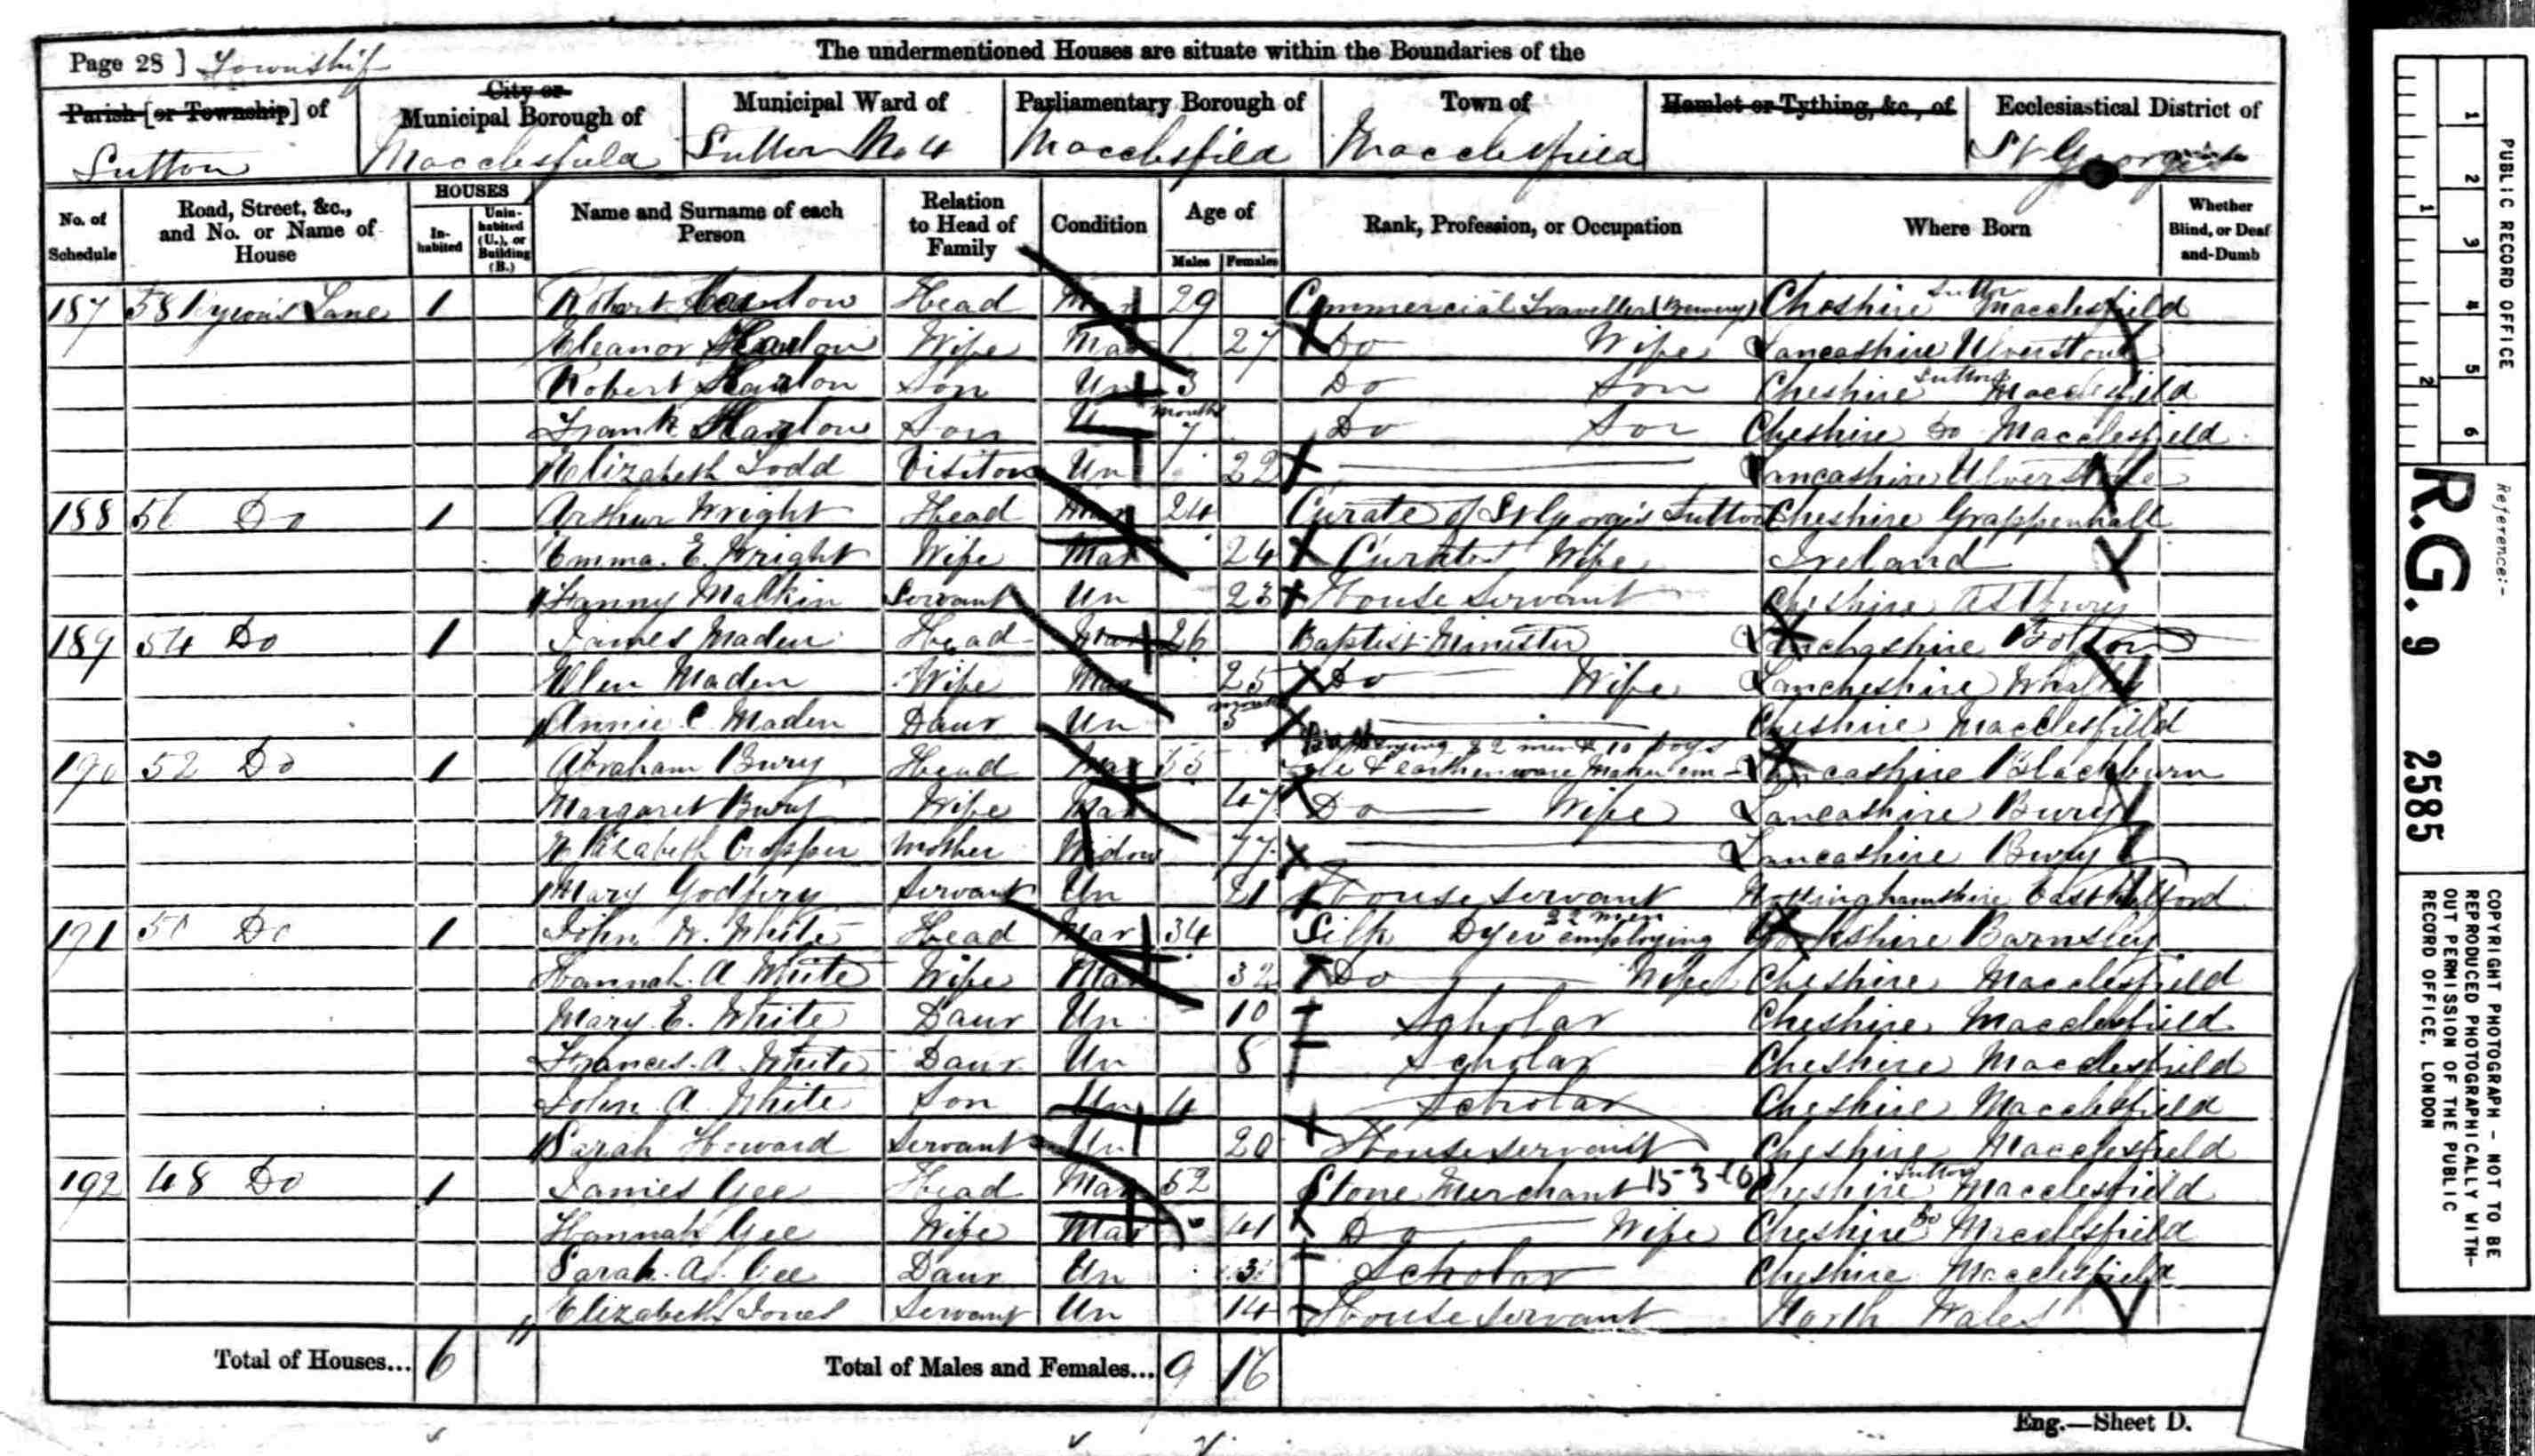 Page 28 ] Township
The undermentioned Houses are situate within the Boundaries of the
Parish [or Township] of
City or Municipal Borough of
Municipal Ward of
Parliamentary Borough of
Town of
Hamlet or Tything, &c., of
Ecclesiastical District of
Sutton Macclesfield Sutton No 4 Macclesfield Macclesfield St Georges
No. of Schedule
Road, Street, &c., and No. or Name of House
HOUSES
In-habited
Unin-habited (U.), or Building (B.)
Name and Surname of each Person
Relation to Head of Family
Condition
Age of
Males Females
Rank, Profession, or Occupation
Where Born
Whether Blind, or Deaf-and-Dumb
187 58 Byrons Lane 1 Robert Head Mar 29 Commercial Traveller (Brewery) Cheshire Sutton Macclesfield
Eleanor Wife Mar 27 Do Wife Lancashire Ulverstone
Robert Son Un 3 Do Son Cheshire Sutton Macclesfield
Frank Son Un months 7 Do Son Cheshire Do Macclesfield
Elizabeth Todd Visitor Un 22 Lancashire Ulverstone
188 56 Do 1 Arthur Wright Head Mar 24 Curate of St Georges Sutton Cheshire Grappenhall
Emma. E. Wright Wife Mar 24 Curates Wife Ireland
Fanny Malkin Servant Un 23 House Servant Cheshire Astbury
189 54 Do 1 James Maden Head Mar 26 Baptist Minister Bolton
Ellen Maden Wife Mar 25 Do Wife Lancheshire
Annie C Maden Daur Un months 5 Cheshire Macclesfield
190 52 Do 1 Abraham Bury Head Mar 55 employing 22 men & 10 boys & Earthenware Lancashire Blackburn
Margaret Bury Wife Mar 47 Do Wife Lancashire Bury
Elizabeth Cropper Mother Widow 77 Lancashire Bury
Mary Godfery Servant Un 21 House Servant Nottinghamshire East Retford
191 50 Do 1 John W. White Head Mar 34 Silk Dyer employing 22 men Yorkshire Barnsley
Hannah. A White Wife Mar 32 Do Wife Cheshire Macclesfield
Mary. E. White Daur Un 10 Scholar Cheshire Macclesfield
Frances. A. White Daur Un 8 Scholar Cheshire Macclesfield
John. A. White Son Un 4 Scholar Cheshire Macclesfield
Sarah Howard Servant Un 20 House Servant Cheshire Macclesfield
192 48 Do 1 James Gee Head Mar 52 Stone Merchant 15-3-10 Cheshire Sutton Macclesfield
Hannah Gee Wife Mar 41 Do Wife Cheshire Do Macclesfield
Sarah. A. Gee Daur Un 3 Scholar Cheshire Macclesfield
Elizabeth Jones Servant Un 14 House Servant North Wales
Total of Houses... 6
Total of Males and Females... 9 16
Eng.—Sheet D.
1 2 3 4 5 6
1 2
PUBLIC RECORD OFFICE
Reference:-
R.G. 9 2585
COPYRIGHT PHOTOGRAPH - NOT TO BE
REPRODUCED PHOTOGRAPHICALLY WITH-
OUT PERMISSION OF THE PUBLIC
RECORD OFFICE, LONDON